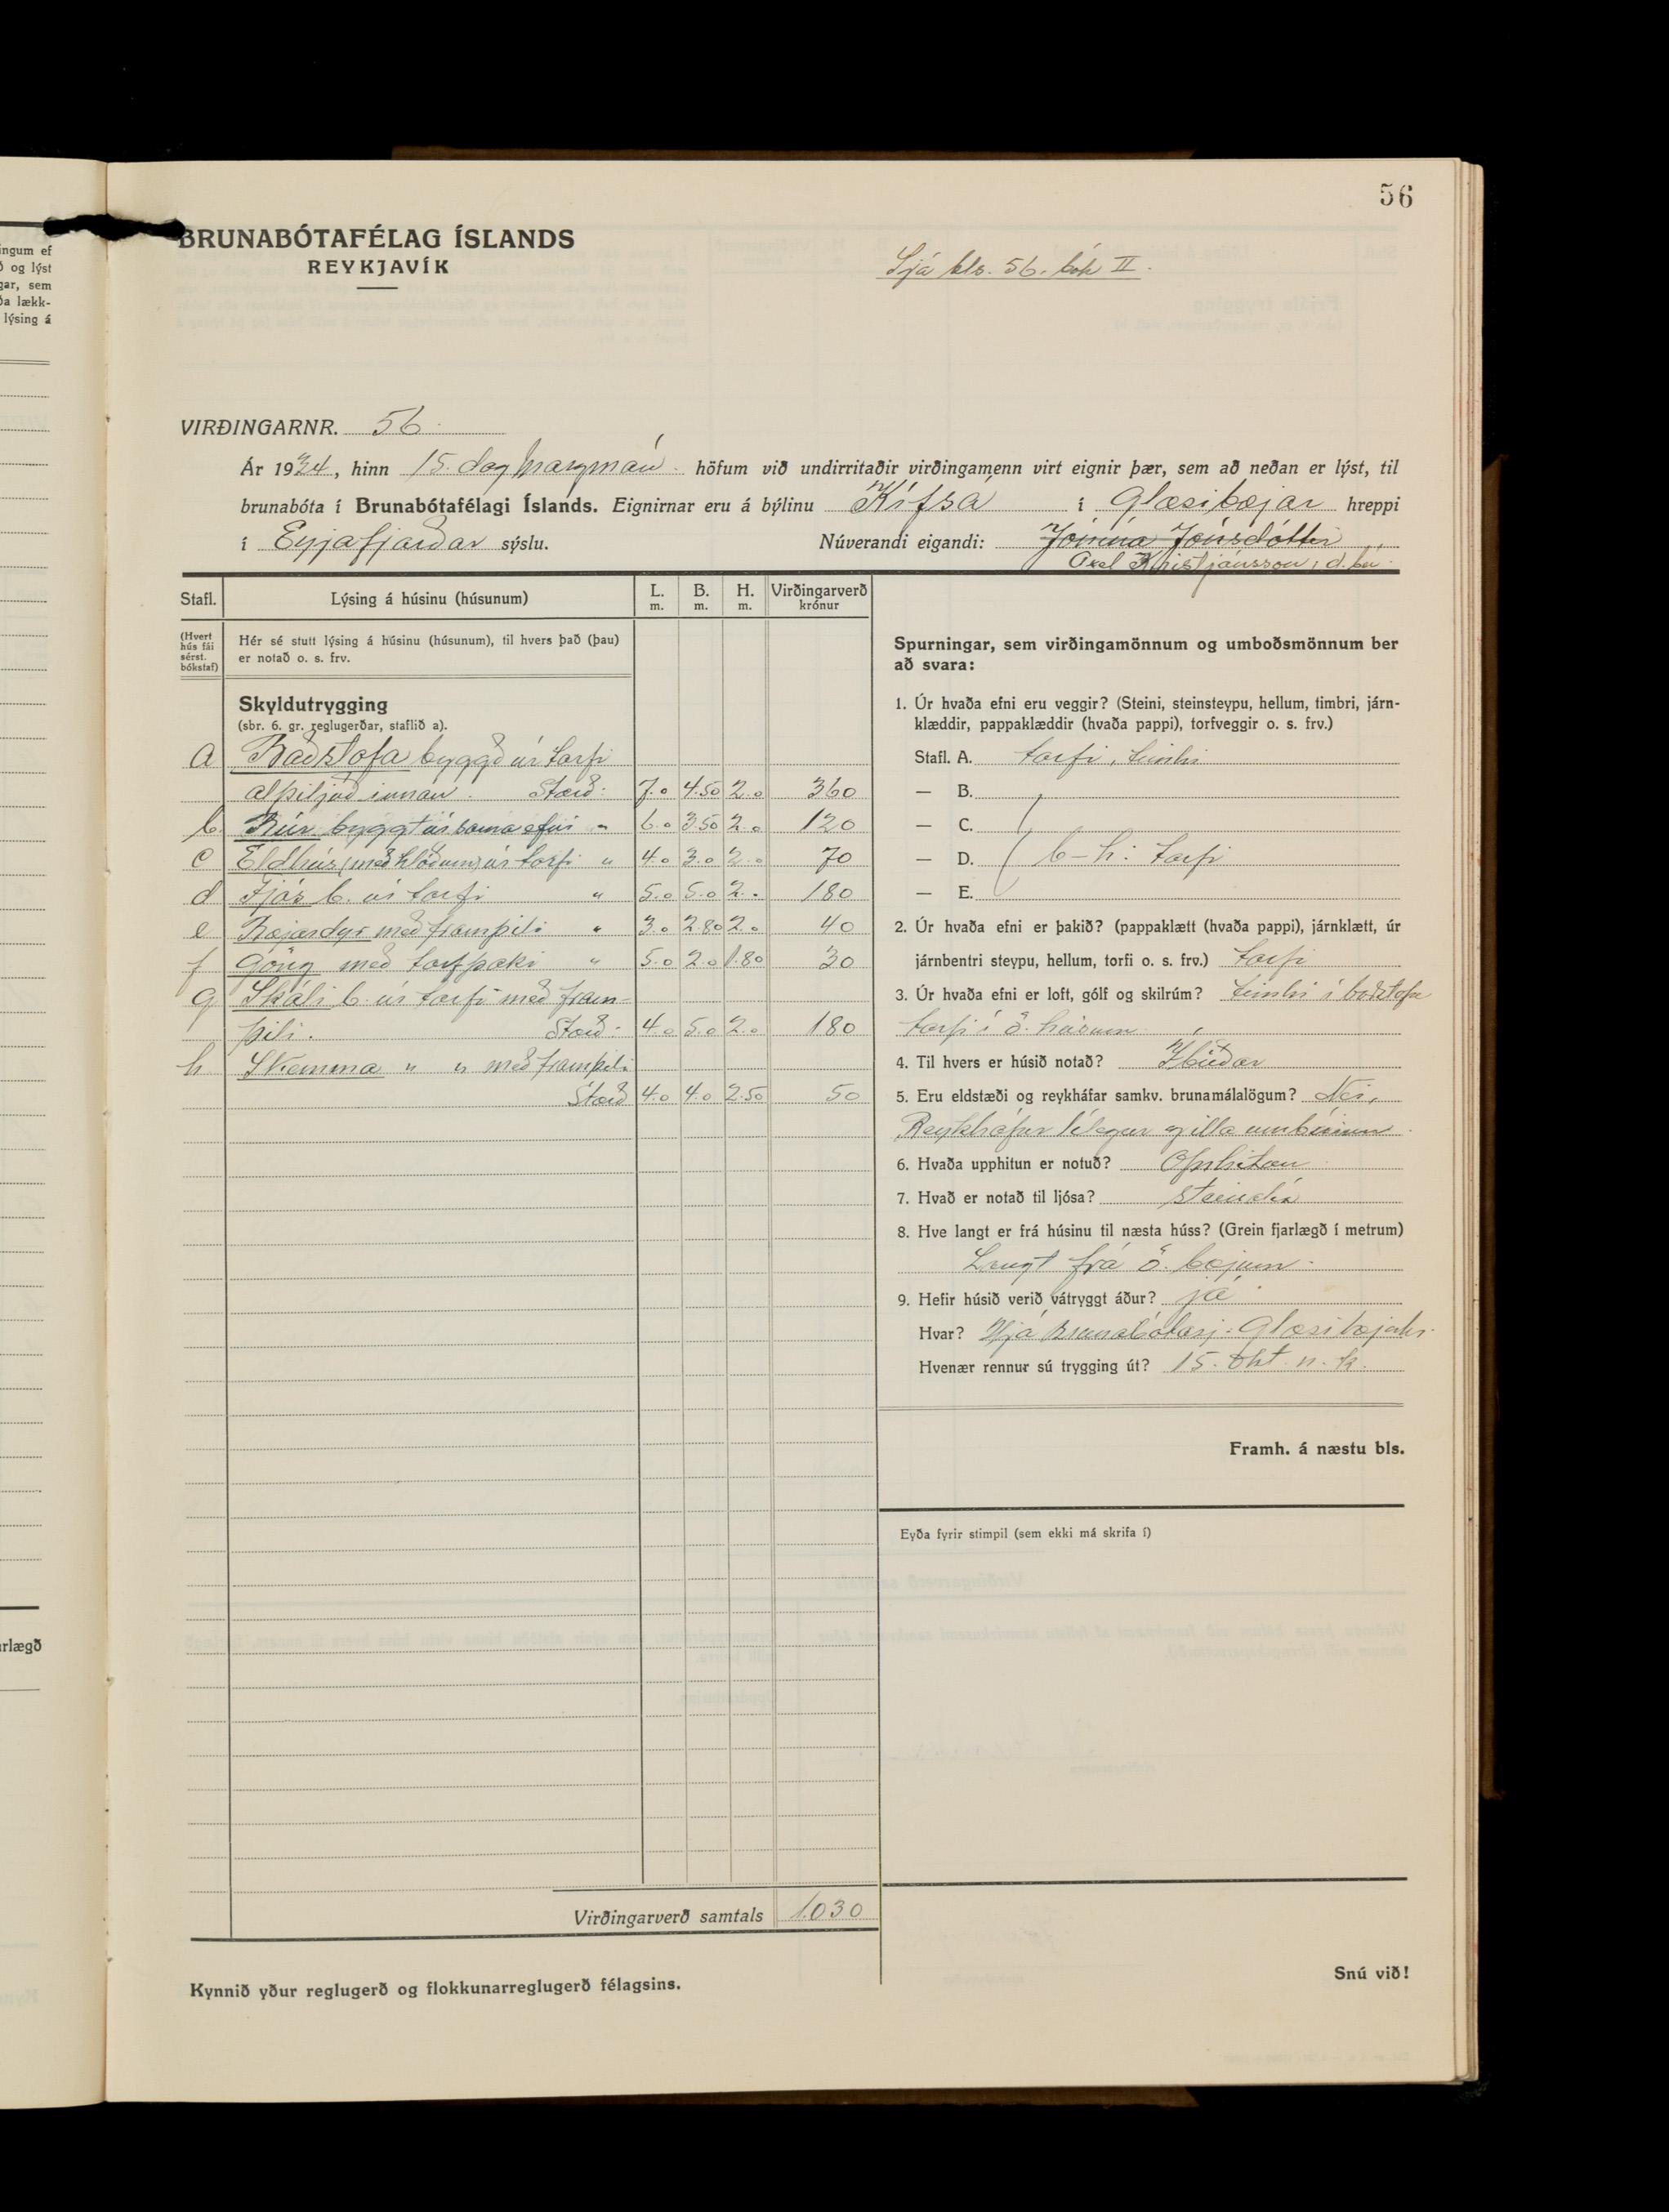 56
BRUNABÓTAFÉLAG ÍSLANDS
REYKJAVÍK
Sjá bls. 56. bók II.
VIRÐINGARNR. 56.
Ár 1934, hinn 15. dag marzmán. höfum við undirritaðir virðingamenn virt eignir þær, sem að neðan er lýst, til
brunabóta í Brunabótafélagi Íslands. Eignirnar eru á býlinu Kífsá í Glæsibæjar hreppi
í Eyjafjarðar sýslu. Núverandi eigandi: Jónína Jónsdóttir
Axel Kristjánsson, d.bú.
Stafl. Lýsing á húsinu (húsunum) L. m. B. m. H. m. Virðingarverð krónur
(Hvert hús fái sérst. bókstaf)
Hér sé stutt lýsing á húsinu (húsunum), til hvers það (þau)
er notað o. s. frv.
Skyldutrygging
(sbr. 6. gr. reglugerðar, staflið a).
a Baðstofa byggð úr torfi
alþiljuð innan. Stærð: 7.0 4.50 2.0 360
b Búr byggt úr sama efni " 6.0 3.50 2.0 120
c Eldhús (með hlóðum) úr torfi " 4.0 3.0 2.0 70
d Fjós b. úr torfi " 5.0 5.0 2.0 180
e Bæjardyr með framþili " 3.0 2.80 2.0 40
f Göng með torfþaki " 5.0 2.0 1.80 30
g Skáli b. úr torfi með fram-
þili. Stærð: 4.0 5.0 2.0 180
h Skemma " " með framþili
Stærð 4.0 4.0 2.50 50
Virðingarverð samtals 1.030
Kynnið yður reglugerð og flokkunarreglugerð félagsins.
Spurningar, sem virðingamönnum og umboðsmönnum ber
að svara:
1. Úr hvaða efni eru veggir? (Steini, steinsteypu, hellum, timbri, járn-
klæddir, pappaklæddir (hvaða pappi), torfveggir o. s. frv.)
Stafl. A. torfi, timbri
— B.
— C.
— D. b-h: torfi
— E.
2. Úr hvaða efni er þakið? (pappaklætt (hvaða pappi), járnklætt, úr
járnbentri steypu, hellum, torfi o. s. frv.) torfi
3. Úr hvaða efni er loft, gólf og skilrúm? timbri í baðstofu
torfi í ö. húsum
4. Til hvers er húsið notað? Íbúðar
5. Eru eldstæði og reykháfar samkv. brunamálalögum? Nei,
Reykháfur lélegur og illa umbúinn.
6. Hvaða upphitun er notuð? Ofnhitun
7. Hvað er notað til ljósa? steinolía
8. Hve langt er frá húsinu til næsta húss? (Grein fjarlægð í metrum)
Langt frá ö. bæjum.
9. Hefir húsið verið vátryggt áður? já
Hvar? Hjá Brunabótasj. Glæsibæjarhr.
Hvenær rennur sú trygging út? 15. okt. n. k.
Framh. á næstu bls.
Eyða fyrir stimpil (sem ekki má skrifa í)
Snú við!
ingum ef
ð og lýst
gar, sem
ða lækk-
lýsing á
rlægð